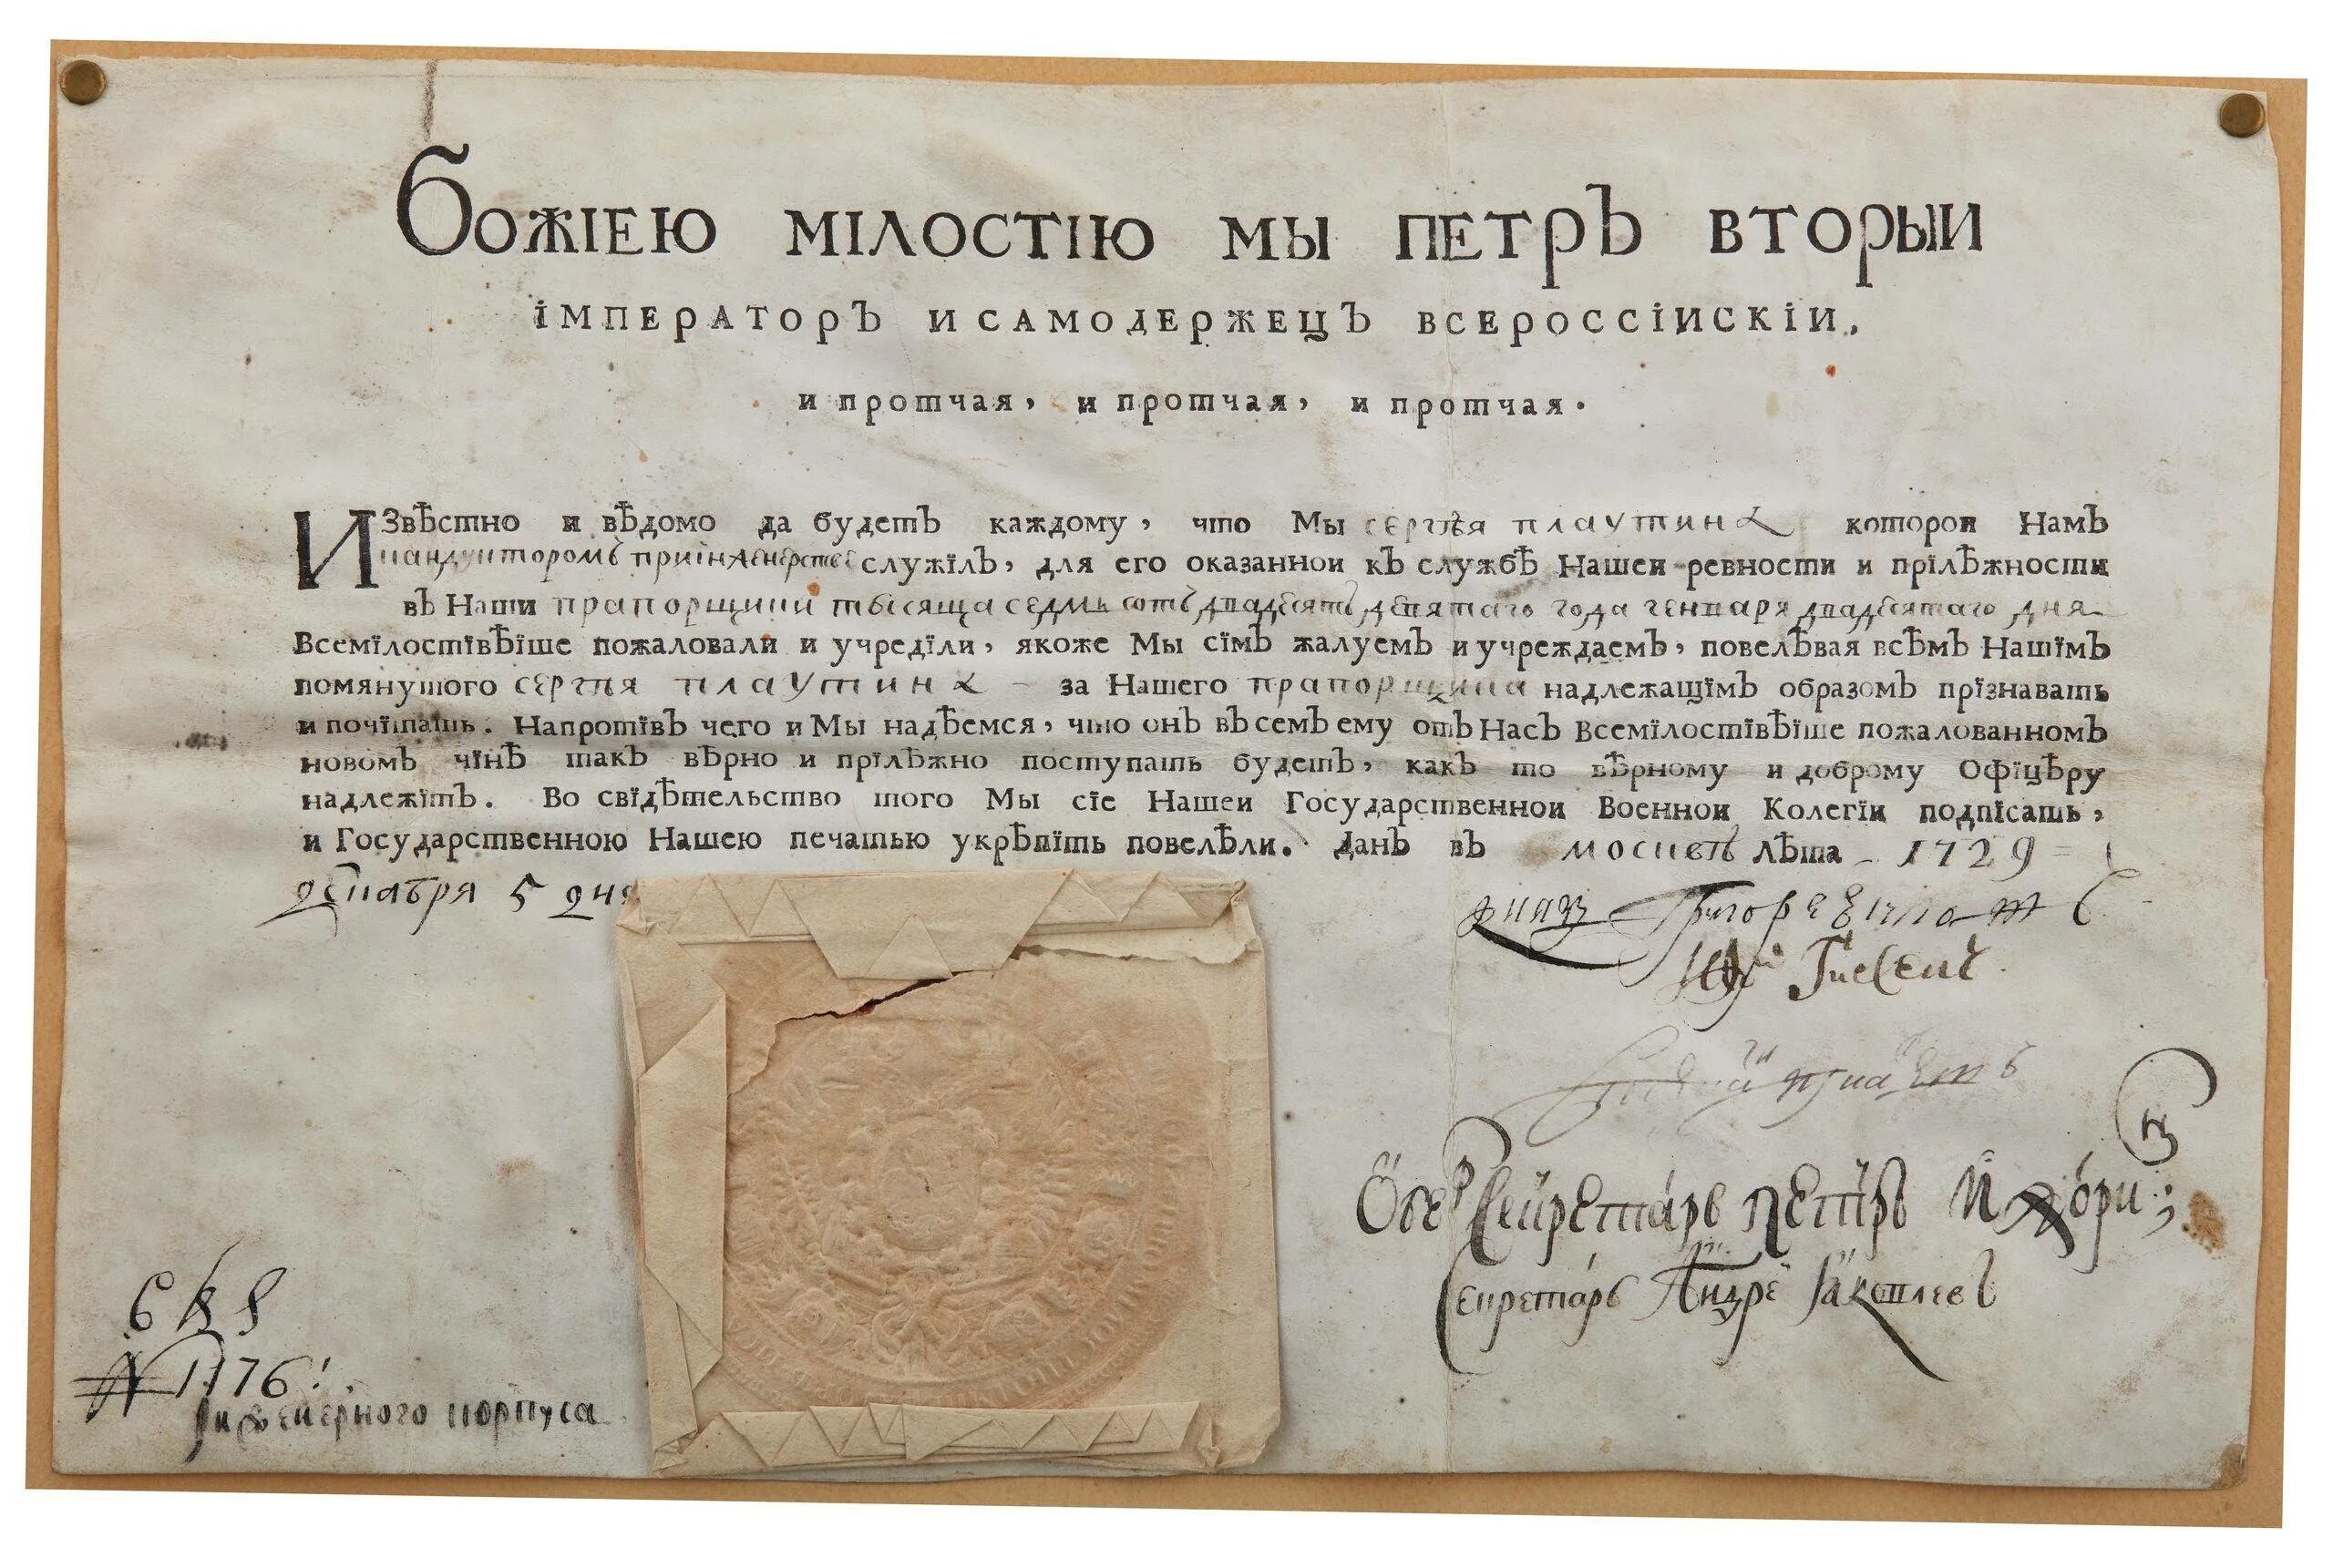 БОЖІЕЮ МІЛОСТІЮ МЫ ПЕТРЪ ВТОРЫИ
ІМПЕРАТОРЪ И САМОДЕРЖЕЦЪ ВСЕРОССІИСКІИ,
и протчая, и протчая, и протчая.
ИЗвѣстно и вѣдомо да будетъ каждому, что Мы сергѣя плаутина которои Намъ
кандуиторомъ при служїлъ, для его оказаннои къ службѣ Нашеи ревности и прїлѣжности
въ Наши прапорщики тысяща седмь сотъ двадесятъ девятаго года генваря двадесятаго дня
Всемїлостївѣїше пожаловали и учредїли, якоже Мы сїмъ жалуемъ и учреждаемъ, повелѣвая всѣмъ Нашїмъ
помянутого сергѣя плаутина за Нашего прапорщика надлежащїмъ образомъ прїзнавать
и почїтать. Напротївъ чего и Мы надѣемся, что онъ въ семъ ему отъ Насъ Всемїлостївѣїше пожалованномъ
новомъ чїнѣ такъ вѣрно и прїлѣжно поступать будетъ, какъ то вѣрному и доброму Офїцѣру
надлежїтъ. Во свїдѣтельство того Мы сїе Нашеи Государственнои Военнои Колегїи подпїсать,
и Государственною Нашею печатью укрѣпїть повелѣли. Данъ въ москвѣ лѣта 1729
декабря 5 дня
Оберъ секретарь петръ
Секретарь Андре Яковлевъ
№ 1176
Инженерного корпуса